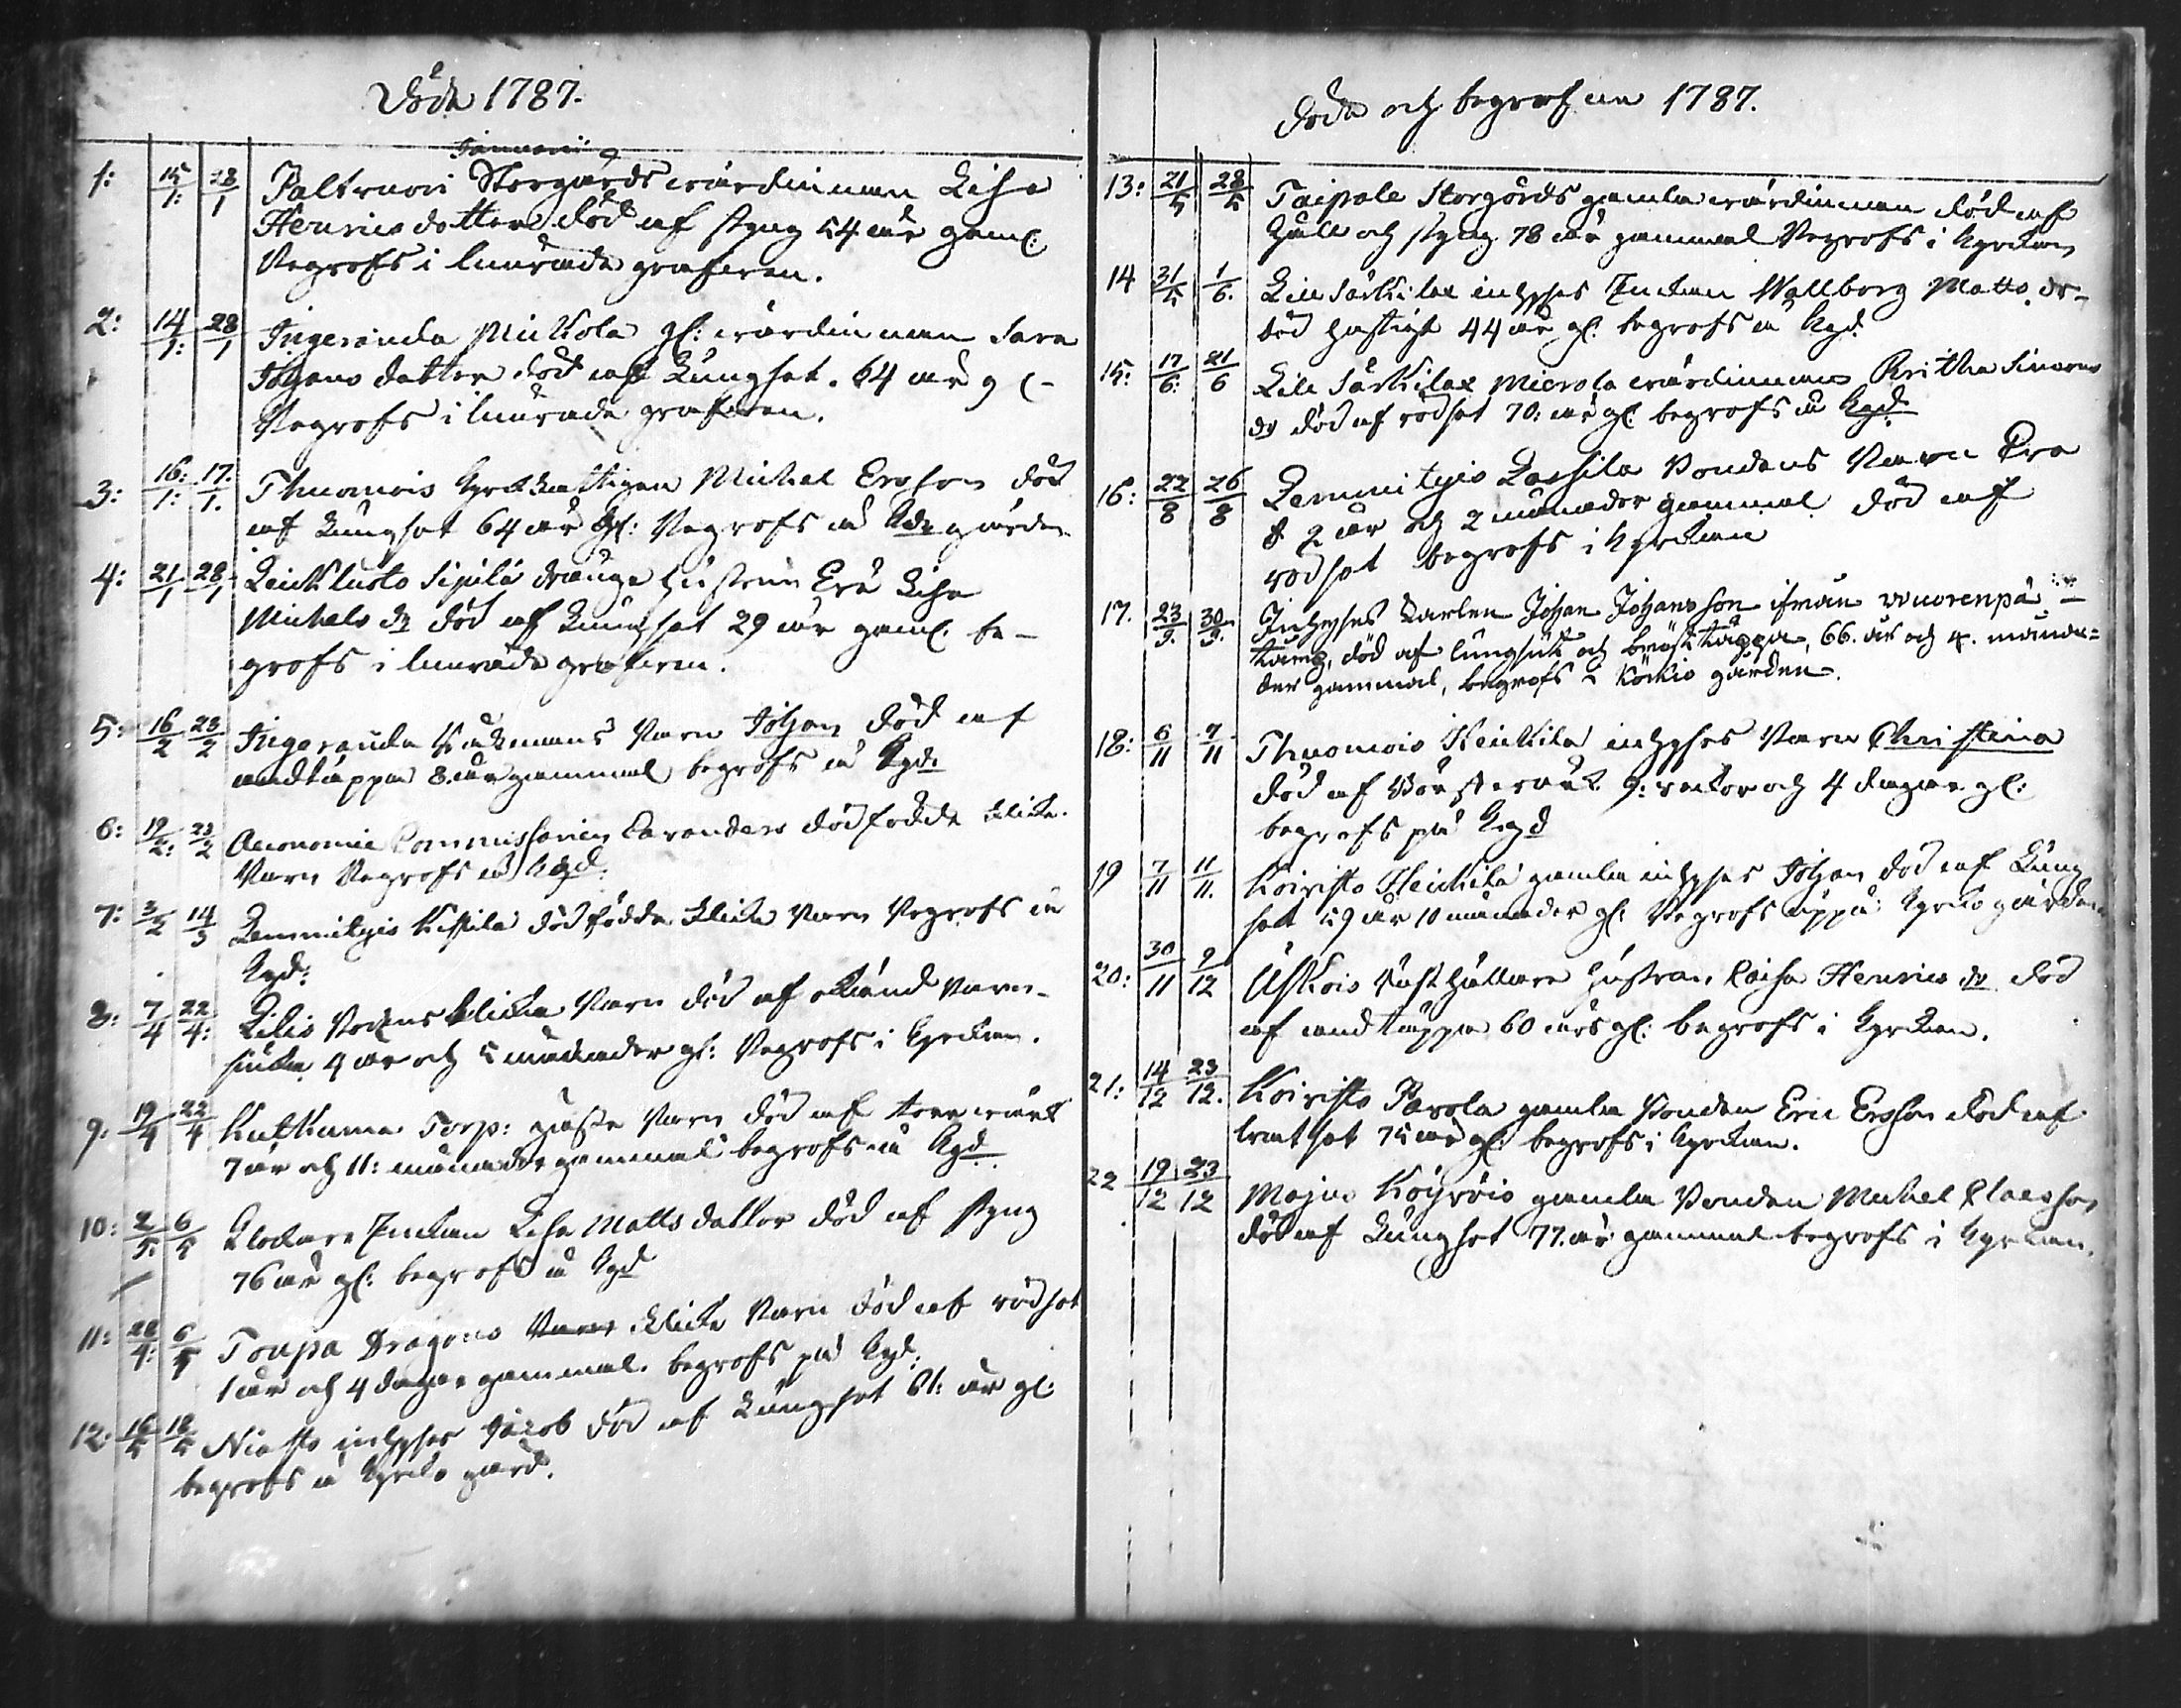 Döde 1787.
Januarii
1: 15/1: 28/1 Paltvuori Storgårds värdinnan Lisa
Henrics dotter död af styng 54 år gaml:
Begrofs i murade grafven.
2: 14/1: 28/1 Ingeranda Mickola gl: värdinnan Sara
Johans dotter död af Lungsot. 64 år gl
Begrofs i murade grafven.
3: 16:/1: 17:/1. Thuomois Michel Ersson död
af Lungsot 64 år gl: Begrofs å gården
4: 21/1 28/1 Leinklusto Sipilä drängz hustrun Eva Lisa
Michels dr död af Lungsot 29 år gaml. be-
grofs i murade grafven.
5: 16/2 23/2 Ingeranda Barn Johan död af
andtäppa 8 år gammal begrofs å Kgd.
6: 19/2: 23/2 Oeconomie Commissarien dödfödde flicke
Barn Begrofs å Kgd.
7: 3/2 14/3 Lemmityis dödfödda flicke Barn Begrofs å
Kgd:
8: 7/4 22/4: flicke Barn död af okänd barn-
siukdom 4 år och 5 månader gl: Begrofs i Kyrckan.
9: 19/4 22/4 Torp: Barn död af
7 år och 11: månader gammal begrofs å Kgd.
10: 2/5: 6/5 Klockare Enckan Lisa Matts dotter död af styng
76 år gl: begrofs å Kgd
11: 28/4: 6/5 Toupa Dragons flicke Barn död af rödsot
1 år och 4 dagar gammal. begrofs på Kgd:
12: 16/5 18/5 Niatto inhyses Jacob död af Lungsot 61: år gl:
begrofs å Kyrcko gård.
Döde och begrafne 1787.
13: 21/5 28/5 Taipale Storgårds gamla värdinnan död af
håll och styng 78 år gammal Begrofs i Kyrckan
14 31/5 1/6. Lill Särkilax inhyses Enckan Wallborg Matts dr
död hastigt 44 år gl: begrofs å Kgd.
15: 17/6: 21/6 Lill Särkilax Mickola värdinnan Britha Simons
dr död af rödsot 70: år gl: begrofs å Kgd.
16: 22/8 26/8 Lemmityis Lassila Bondens Barn Eva
2 år och 2 månader gammal död af
rödsot begrofs i Kyrckan
17. 23/9. 30/9. Inhyses Karlen Johan Johansson ifrån Wuorenpä
kamp, död af lungsot och bröst täppa, 66. år och 4. måna=
der gammal, begrofs å Körkio gården.
18: 6/11 9/11 Thuomois Heickilä inhyses Barn Christina
död af Bröstvärk 9: veckor och 4 dagar gl:
begrofs på Kgd
19 7/11 11/11. Koivisto Heickilä gamla inhyses Johan död af Lung
sot 59 år 10 månader gl: Begrofs uppå Kyrko gården
20: 30/11 9/12 Uskois Rusthållare hustrun Caisa Henrics dr död
af andtäppa 60 års gl: begrofs i Kyrckan.
21: 14/12 23/12. Koivisto Pavola gamla Bonden Eric Ersson död af
bröstsot 75 år gl: begrofs i Kyrckan.
22 19/12 23/12 Majus Köyröis gamla Bonden Michel Claesson
död af Lungsot 77. år gammal begrofs i Kyrckan.